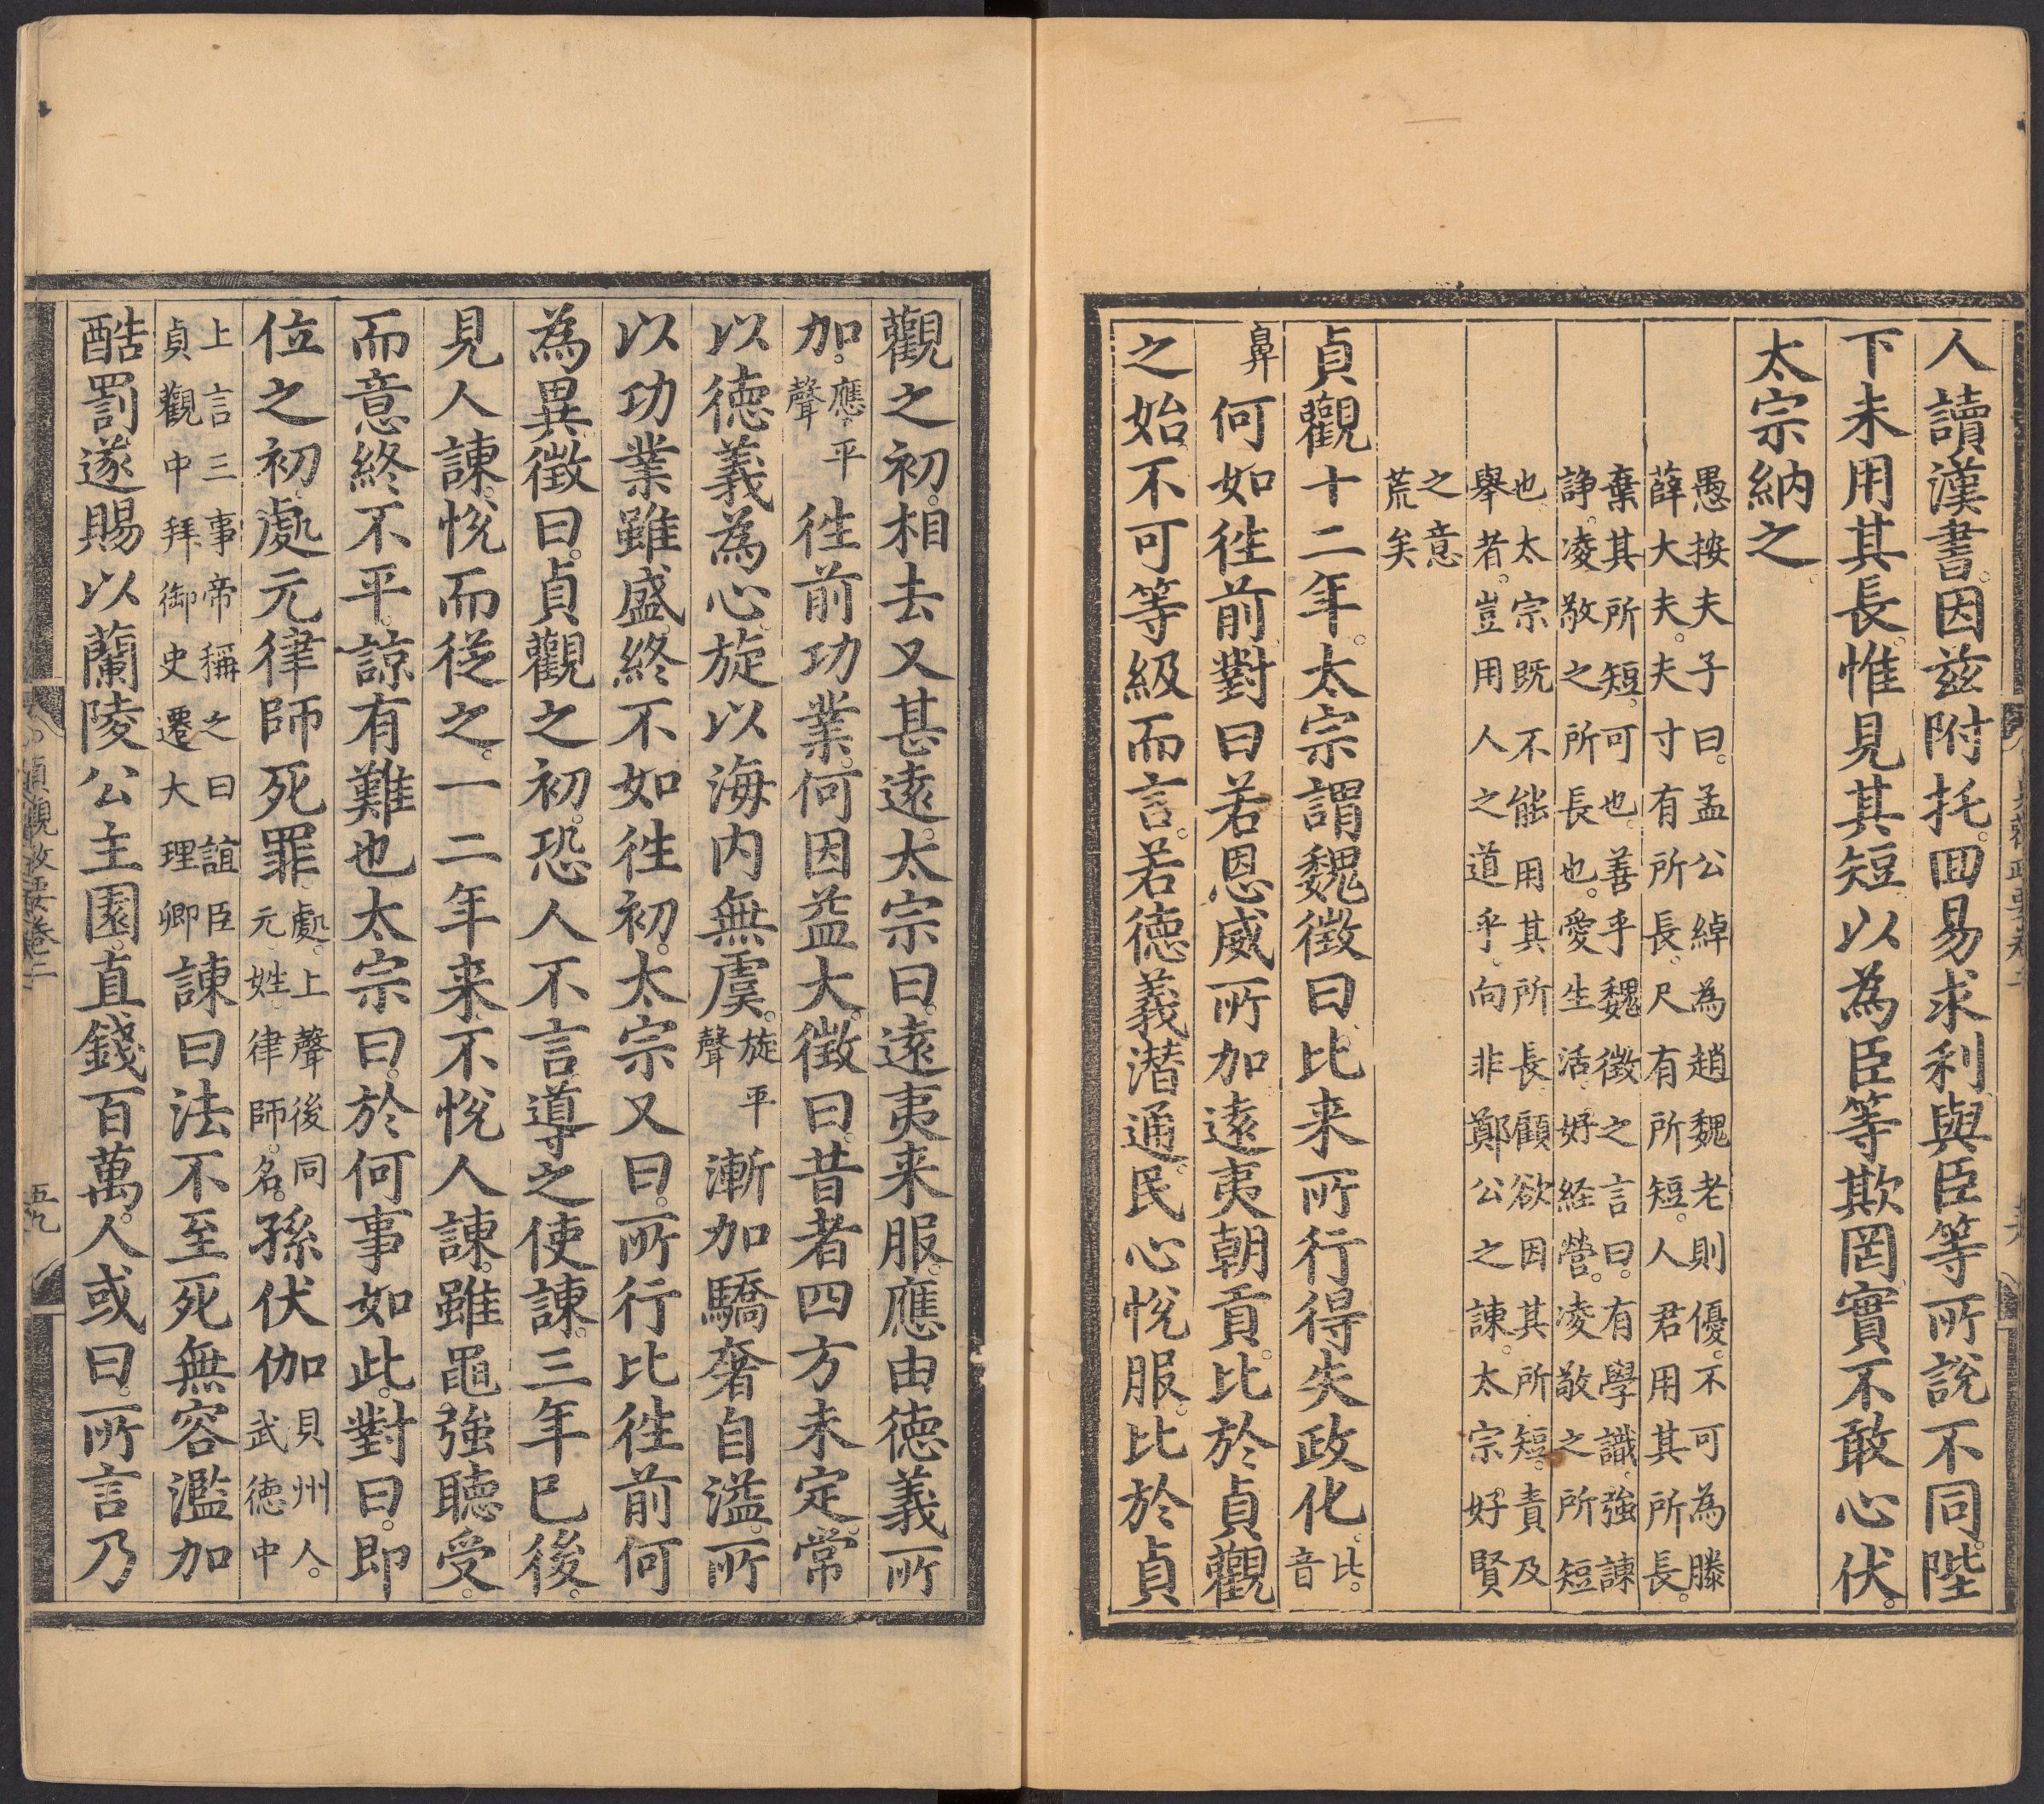 人讀漢書。因茲附托。回易求利。與臣等所說不同。陛
下未用其長。惟見其短。以為臣等欺罔。實不敢心伏。
太宗納之。
愚按夫子曰。孟公綽為趙魏老則優。不可為滕
薛大夫。夫寸有所長。尺有所短。人君用其所長。
棄其所短。可也。善乎魏徵之言曰。有學識。強諫
諍。凌敬之所長也。愛生活。好経營。凌敬之所短
也。太宗既不能用其所長。顧欲因其所短。責及
舉者。豈用人之道乎。向非鄭公之諫。太宗好賢
之意
荒矣
貞觀十二年。太宗謂魏徵曰。比来所行得失政化。比。音
鼻何如徃前。對曰若恩威所加。遠夷朝貢。比於貞觀
之始。不可等級而言。若徳義潜通。民心悅服。比於貞
觀之初。相去又甚遠。太宗曰。遠夷来服。應由徳義所
加。應。平聲徃前功業。何因益大。徵曰。昔者四方未定。常
以徳義為心。旋以海内無虞。旋平聲漸加驕奢自溢。所
以功業雖盛。終不如徃初。太宗又曰。所行比徃前何
為異。徵曰。貞觀之初。恐人不言。導之使諫。三年已後。
見人諫。悅而從之。一二年来。不悅人諫。雖黽強聽受。
而意終不平。諒有難也。太宗曰。於何事如此。對曰。即
位之初。處元律師死罪。處。上聲後同元。姓。律師。名。孫伏伽貝州人。武徳中
上言三事帝稱之曰誼臣貞觀中拜御史遷大理卿諫曰法不至死。無容濫加
酷罰。遂賜以蘭陵公主園。直錢百萬。人或曰。所言乃
貞觀政要卷二
五九